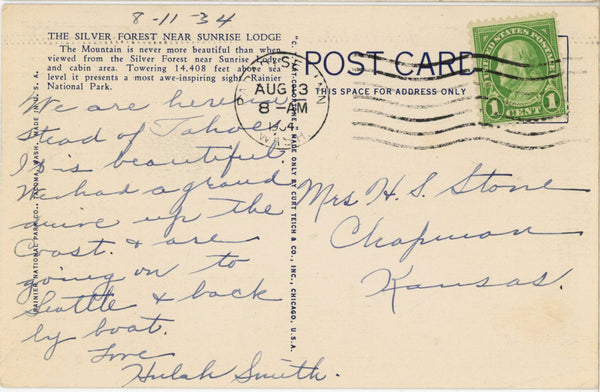 8-11-34
THE SILVER FOREST NEAR SUNRISE LODGE
The Mountain is never more beautiful than when
viewed from the Silver Forest near Sunrise Lodge
and cabin area. Towering 14,408 feet above sea
level it presents a most awe-inspiring sight. Rainier
National Park.
We are here in
stead of Tahoe
It is beautiful.
We had a grand
drive up the
Coast. & are
going on to
Seattle & back
by boat.
Love
Hulah Smith.
RAINIER NATIONAL PARK CO., TACOMA, WASH. MADE IN U. S. A.
MADE ONLY BY CURT TEICH & CO., INC., CHICAGO, U.S.A.
POST CARD
THIS SPACE FOR ADDRESS ONLY
AUG 13
8 AM
UNITED STATES POSTAGE
1 CENT 1
Mrs H. S. Stone
Chapman
Kansas.